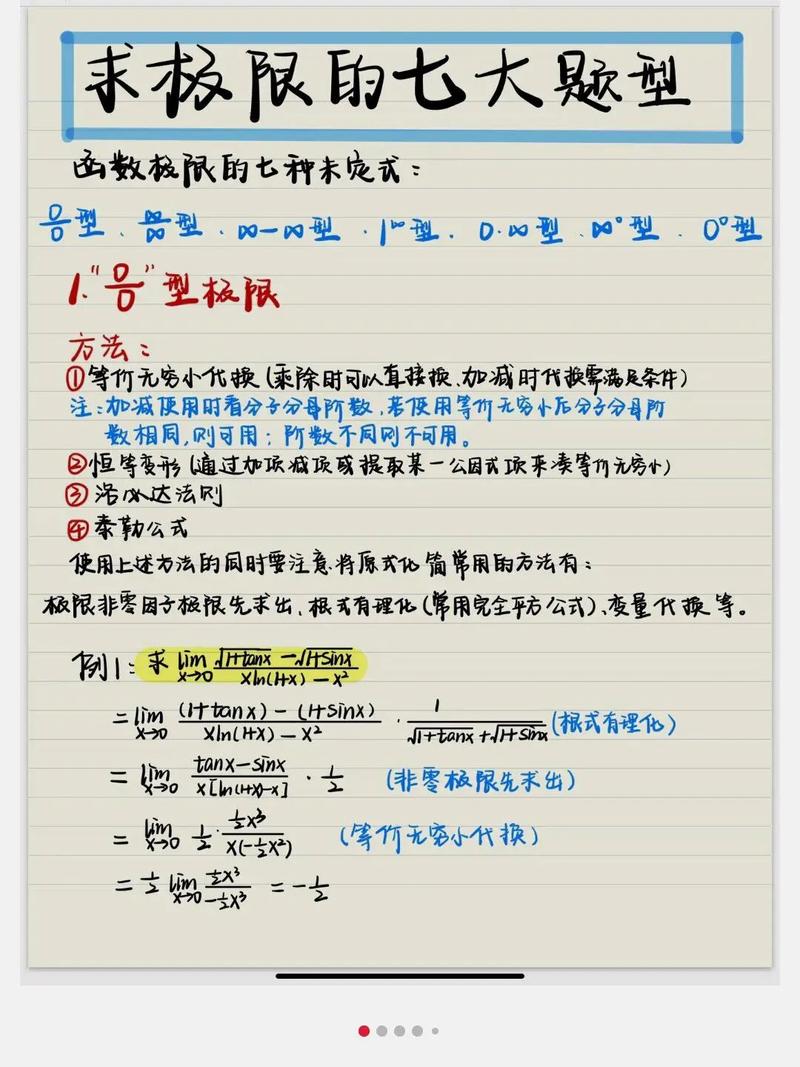 求极限的七大题型
函数极限的七种未定式：
0/0型、∞/∞型、∞-∞型、1^∞型、0·∞型、∞^0型、0^0型
1."0/0"型极限
方法：
①等价无穷小代换(乘除时可以直接换、加减时代换需满足条件)
注：加减使用时看分子分母阶数，若使用等价无穷小后分子分母阶
数相同，则可用；阶数不同则不可用。
②恒等变形(通过加项减项或提取某一公因式项来凑等价无穷小)
③洛必达法则
④泰勒公式
使用上述方法的同时要注意将原式化简常用的方法有：
极限非零因子极限先求出、根式有理化(常用完全平方公式)、变量代换等。
例1：求 lim x→0 (√(1+tanx) - √(1+sinx))/(xln(1+x) - x²)
= lim x→0 ((1+tanx) - (1+sinx))/(xln(1+x) - x²) · 1/(√(1+tanx) + √(1+sinx)) (根式有理化)
= lim x→0 (tanx - sinx)/(x[ln(1+x)-x]) · 1/2 (非零极限先求出)
= lim x→0 1/2 · (1/2x³)/(x(-1/2x²)) (等价无穷小代换)
= 1/2 lim x→0 (1/2x³)/(-1/2x³) = -1/2